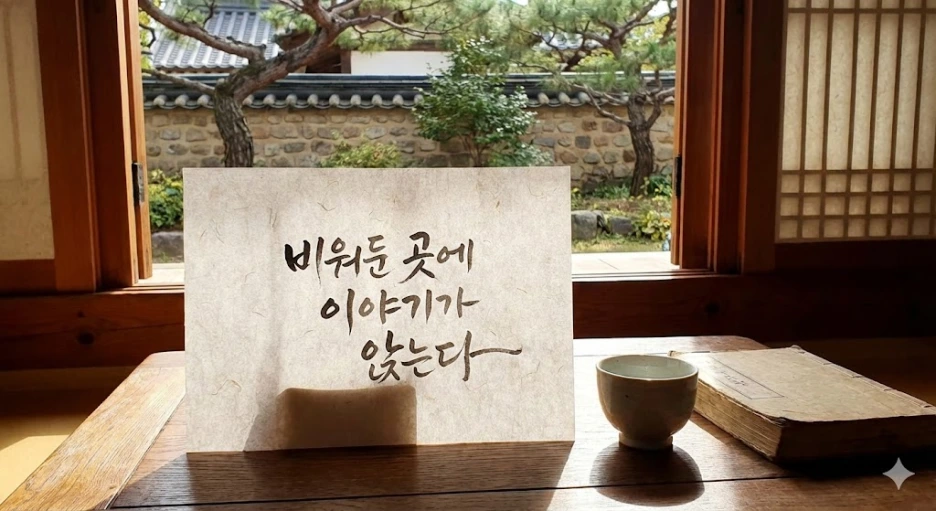 비워둔 곳에
이야기가
앉는다